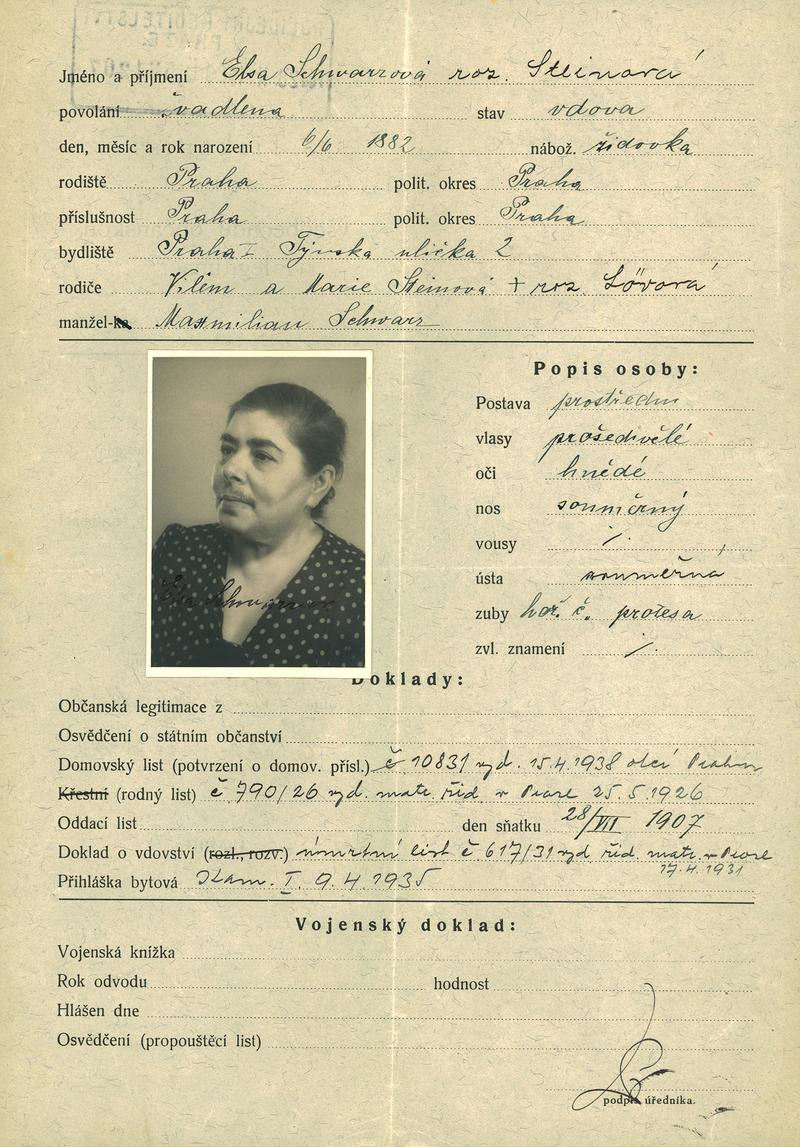 Jméno a příjmení Elsa Schwarzová roz. Steinová
povolání švadlena stav vdova
den, měsíc a rok narození 6/6 1882 nábož. židovka
rodiště Praha polit. okres Praha
příslušnost Praha polit. okres Praha
bydliště Praha I Týnska ulička 2
rodiče Vilém a Marie Steinová + roz. Löwová
manžel-ka Maxmilian Schwarz
Popis osoby:
Postava prostřední
vlasy prošedivělé
oči hnědé
nos souměrný
vousy /.
ústa souměrná
zuby hoř. č. protesa
zvl. znamení /.
Elsa Schwarzová
Doklady:
Občanská legitimace z
Osvědčení o státním občanství
Domovský list (potvrzení o domov. přísl.) č 10831 vyd. 15.4.1938 obcí Prahou
Křestní (rodný list) č 790/26 vyd. matr. žid. v Praze 25.5.1926
Oddací list den sňatku 28/VII 1907
Doklad o vdovství (rozl., rozv.) úmrtní list č 617/31 vyd žid. matr. v Praze
17.4.1931
Přihláška bytová Kom. I. 9.4.1935
Vojenský doklad:
Vojenská knížka
Rok odvodu hodnost
Hlášen dne
Osvědčení (propouštěcí list)
podpis úředníka.